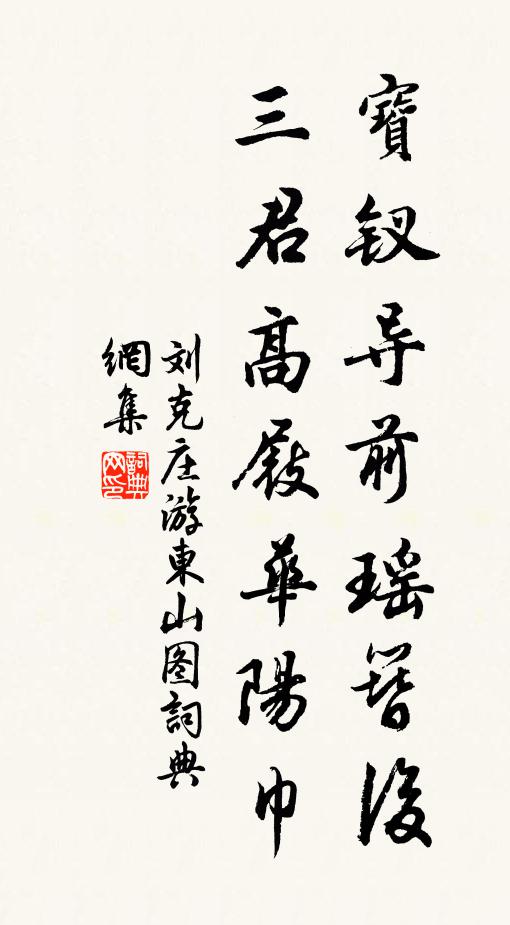 寶釵导前瑶簪後
三君高屐華陽巾
刘克庄游東山图詞典
網集
詞典网印